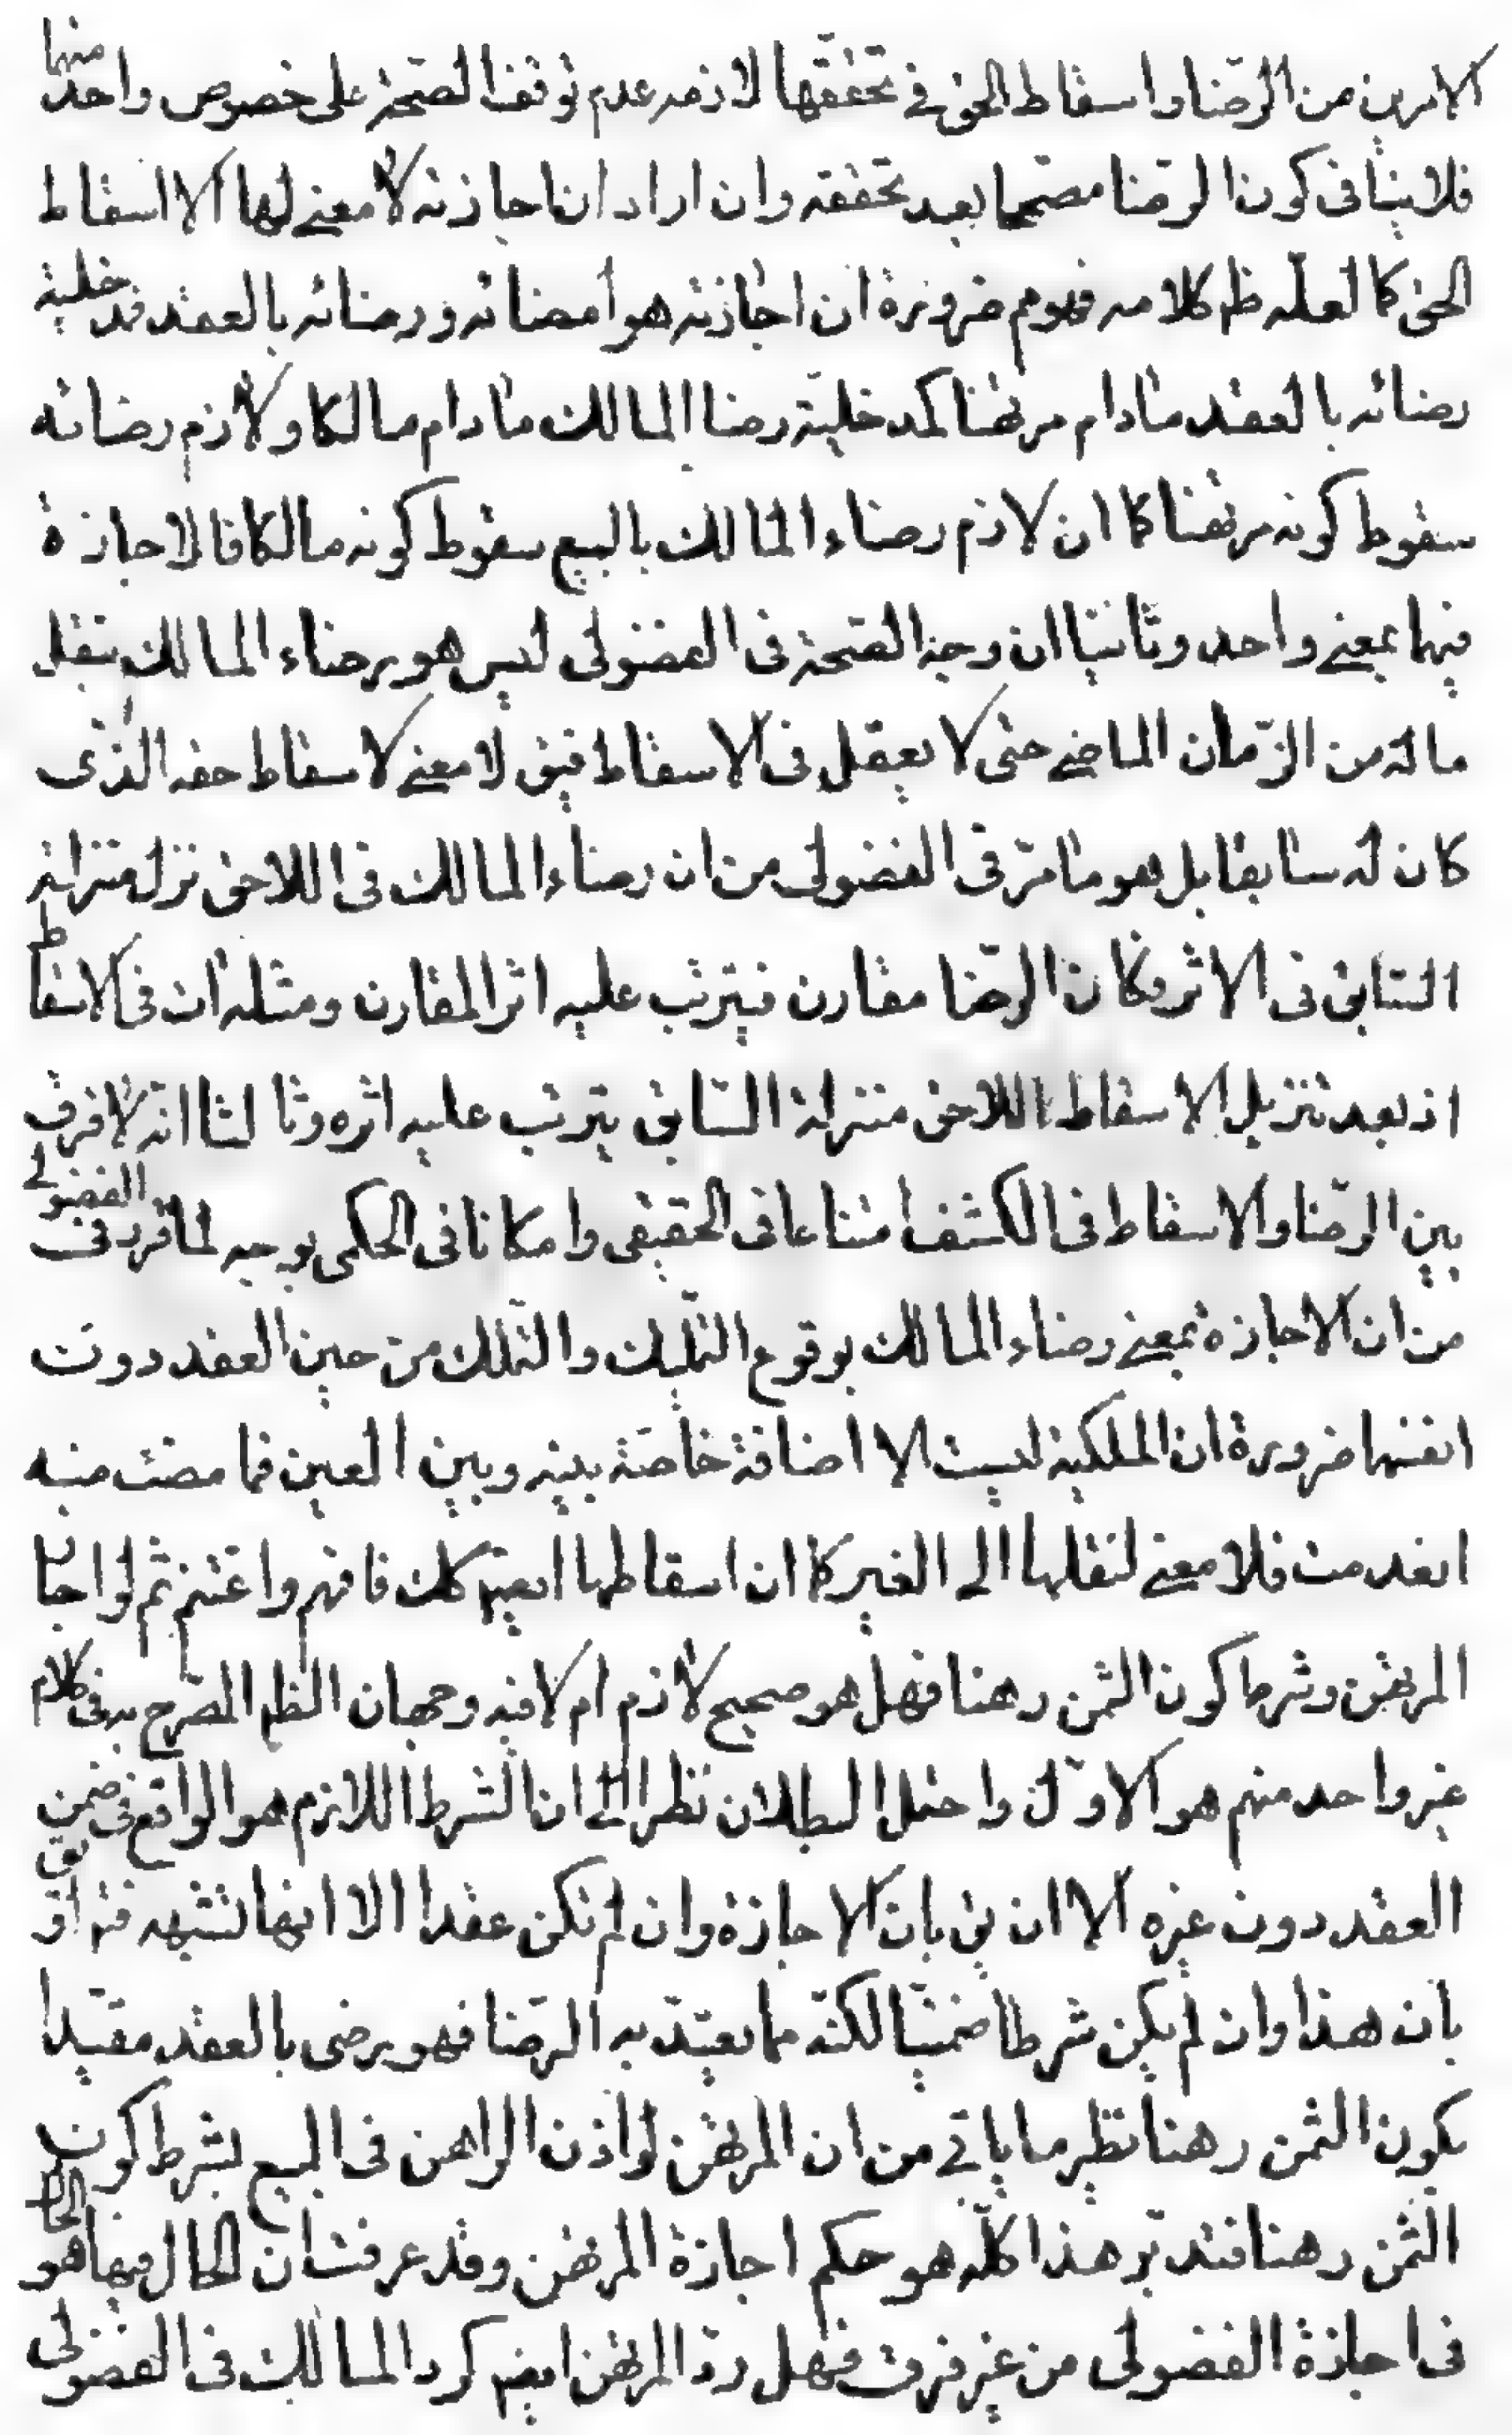 الامرين من الرّضا واسقاط الحق في تحققها لازمه عدم توقف الصّحة على خصوص واحد منهما
فلا ينافى كون الرضا مصحّحا بعد تحققه وان اراد ان اجازته لا معنى لها الا اسقاط
الحق كما لعلّه ظ كلامه فهو م ضرورة ان اجازته هو أمضائه ورضائه بالعقد فدخلية
رضائه بالعقد مادام مرتهنا كمدخليّة رضا المالك مادام مالكا ولازم رضائه
سقوط كونه مرتهنا كما ان لازم رضاء المالك بالبيع سقوط كونه مالكا فالاجازة
فيهما بمعنى واحد وثانيا ان وجه الصّحة فى الفضولى ليس هو رضاء المالك بنقل
ماله من الزّمان الماضى حتى لا يعقل فى الاسقاط فيق لا معنى لاسقاط حقه الذى
كان له سابقا بل هو ما مرّ فى الفضولى من ان رضاء المالك فى اللاحق نزل منزلة
السّابق فى الاثر فكان الرضا مقارن فيترتب عليه اثر المقارن ومثله ات فى الاسقاط
اذ بعد تنزيل الاسقاط اللاحق منزلة السّابق يترتب عليه اثره وثالثا انه لا فرق
بين الرّضا والاسقاط فى الكشف امتناعا فى الحقيقى وامكانا فى الحكمى بوجه لما قرر فى الفضولى
من ان الاجازة بمعنى رضاء المالك بوقوع التمليك والتملك من حين العقد دون
انفسهما ضرورة ان الملكية ليست الا اضافة خاصّة بينه وبين العين فما مضت منه
انعدمت فلا معنى لنقلها الى الغير كما ان اسقاطها ايضا كك فافهم واغتنم ثم لو اجاز
المرتهن وشرط كون الثمن رهنا فهل هو صحيح لازم ام لا فيه وجهان الظ المصّرح به فى كلام
غير واحد منهم هو الاوّل واحتمل البطلان نظرا الى ان الشرط اللازم هو الواقع فى ضمن
العقد دون غيره الا ان يق بان الاجازة وان لم تكن عقدا الا انها تشبهه فتم او يق
بان هذا وان لم يكن شرطا ضمنيّا لكنّه مما يقيّد به الرّضا فهو يرضى بالعقد مقيّدا
بكون الثمن رهنا نظير ما ياتى من ان المرتهن لو اذن الراهن فى البيع بشرط كون
الثمن رهنا فتدبّر هذا كلّه هو حكم اجازة المرتهن وقد عرفت ان الحال فيها هو الحال
فى اجازة الفضولى من غير فرق فهل ردّ المرتهن ايضا كرد المالك فى الفضولى